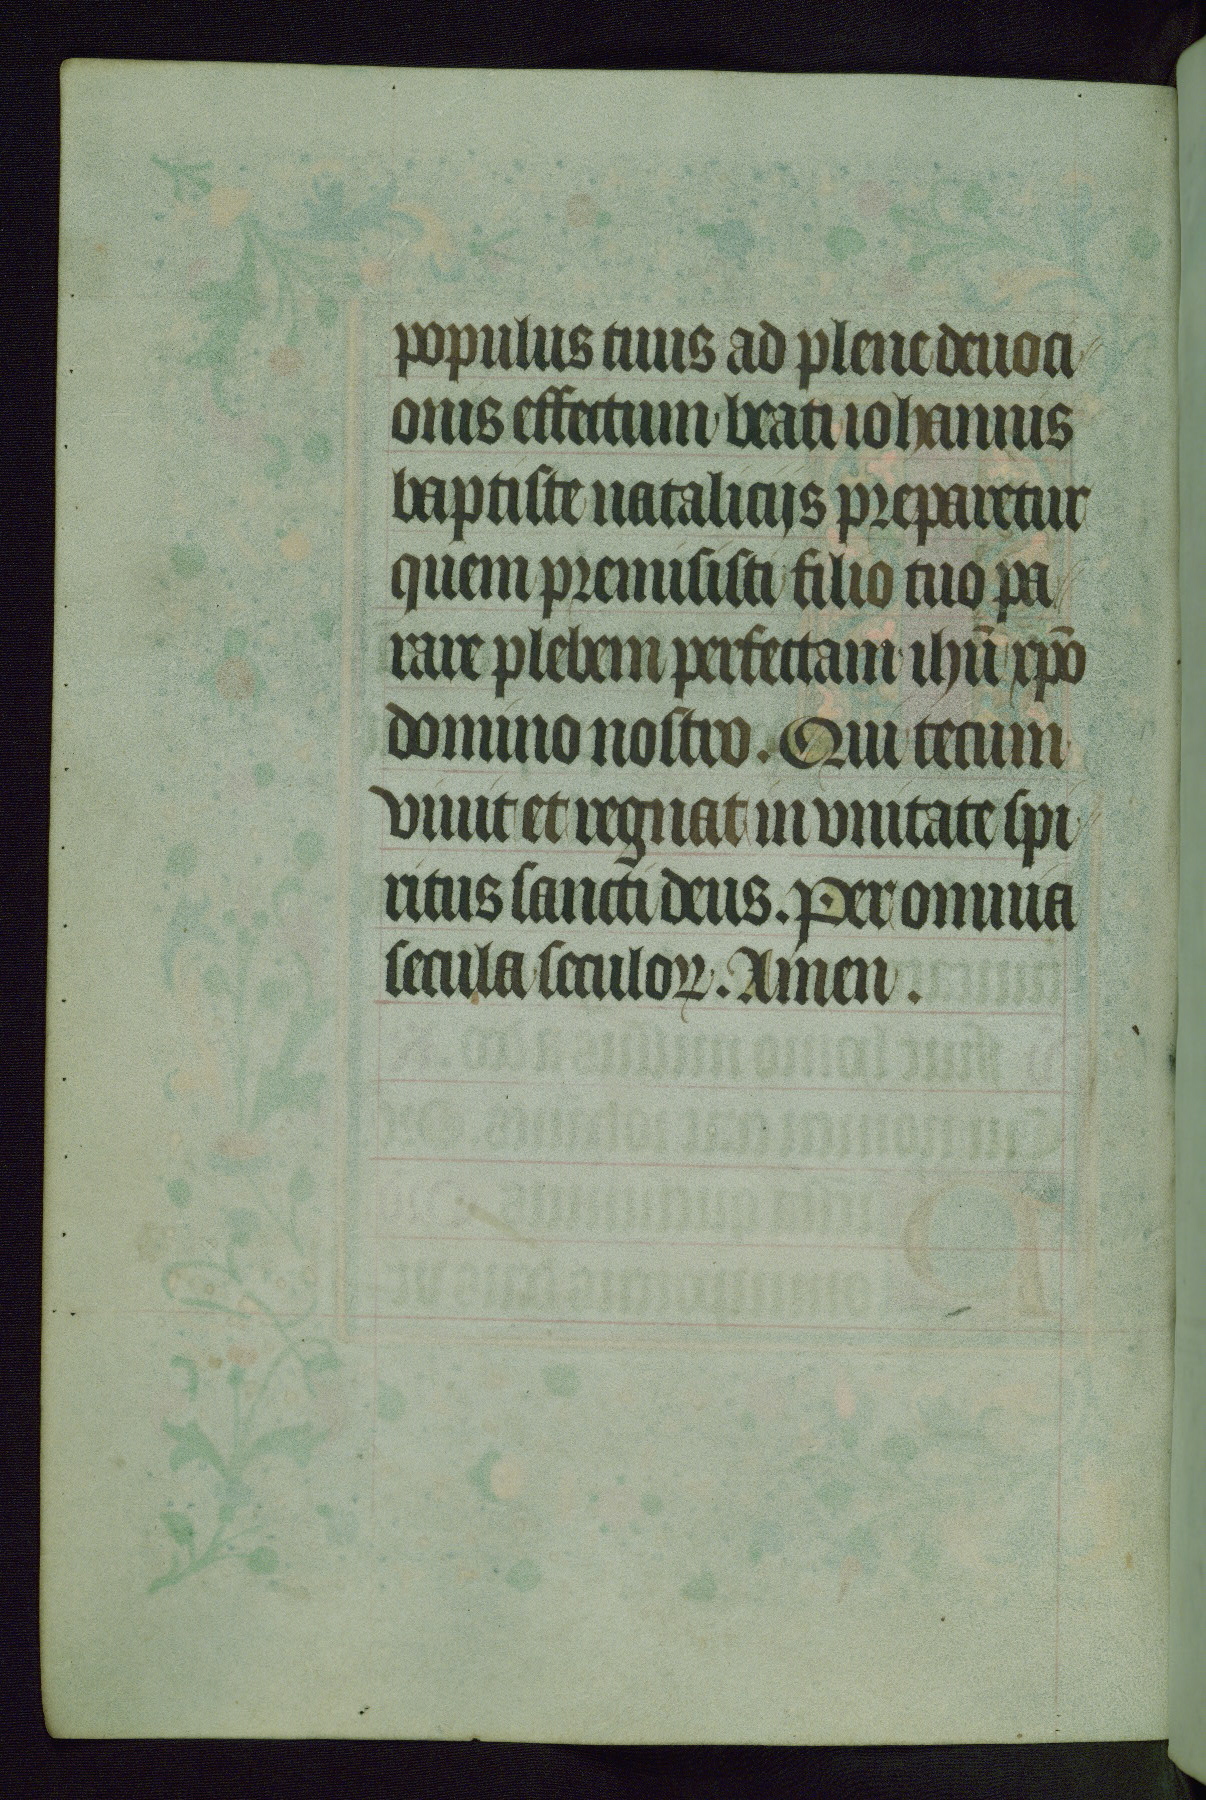 populus tuus ad plene deuoci
onis effectum beati iohannis
baptiste natalicijs preparetur
quem premisisti filio tuo pa
rare plebem perfectam ihū xp̄o
domino nostro. Qui tecum
viuit et regnat in vnitate spi
ritus sancti deus. Per omnia
secula seculoꝝ. Amen.